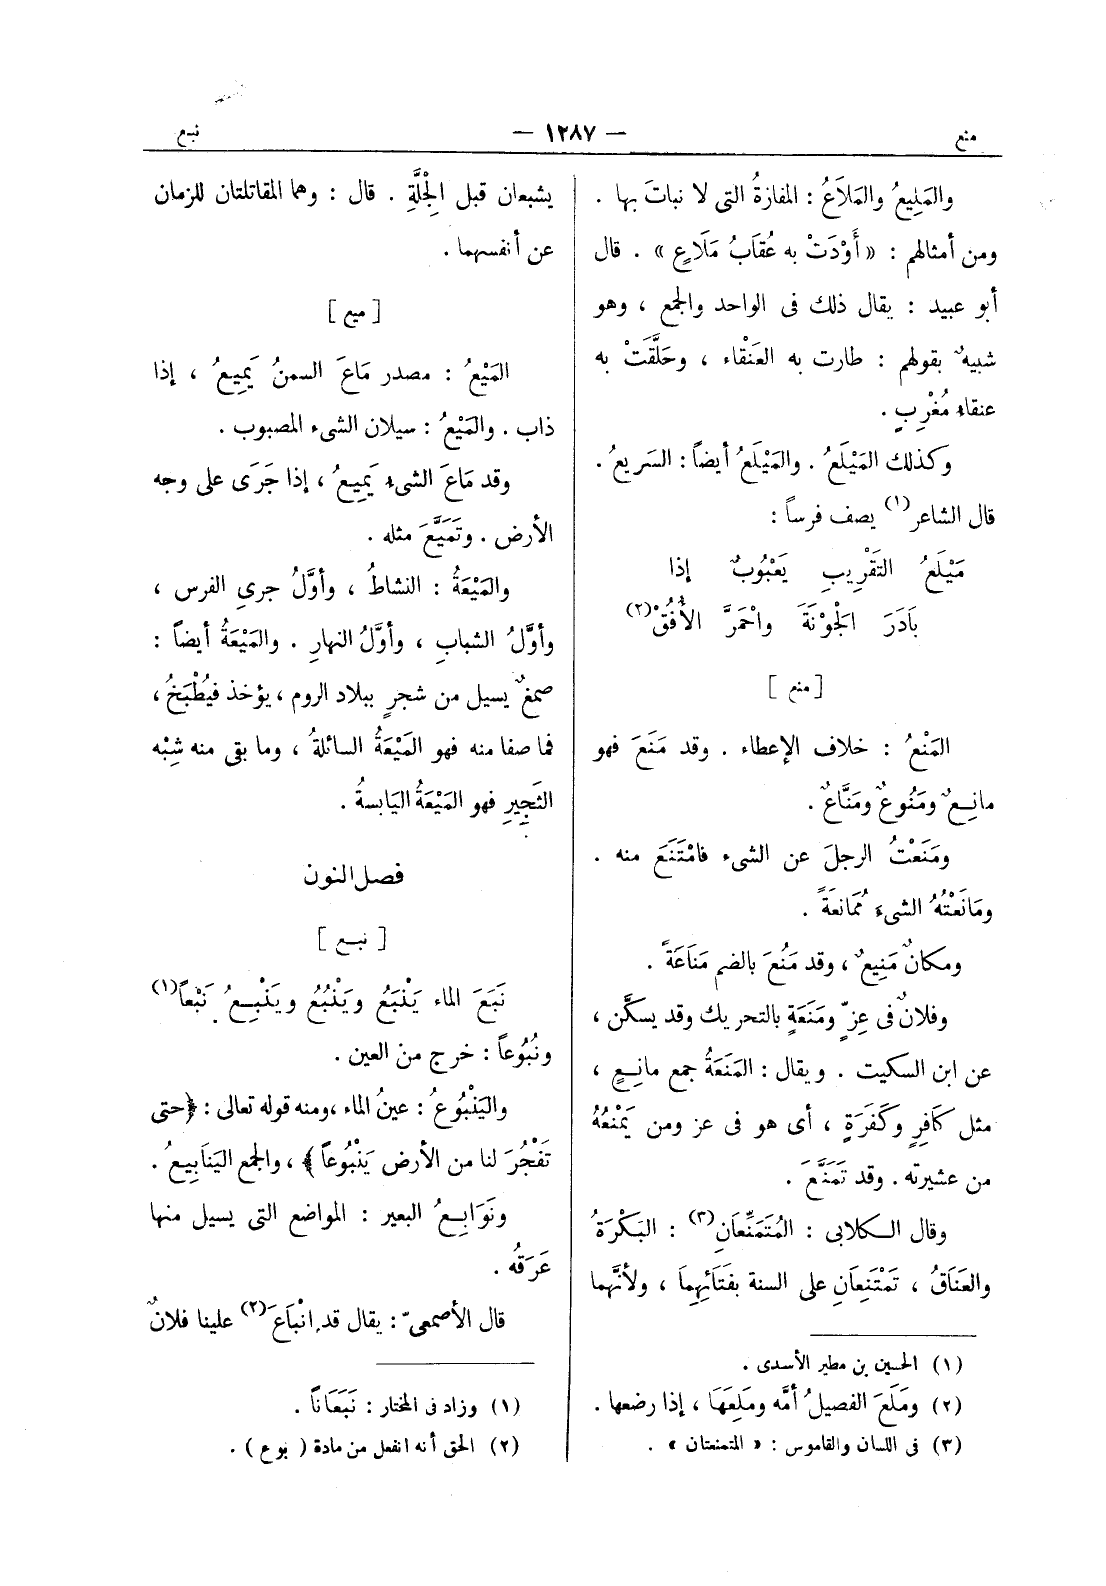 منع
— ١٢٨٧ —
نبع
والمَلِيعُ والمَلَاعُ : المفازةُ التى لا نباتَ بها .
ومن أمثالهم : « أَوْدَتْ به عُقَابُ مَلَاعِ » . قال
أبو عبيد : يقال ذلك فى الواحد والجمع ، وهو
شبيهٌ بقولهم : طارت به العَنْقاء ، وحَلَّقَتْ به
عنقاء مُغْرِبٍ .
وكذلك المَيْلَعُ . والمَيْلَعُ أيضاً : السَريعُ .
قال الشاعر (١) يصف فرساً :
مَيْلَعُ التَقْرِيبِ يَعْبُوبٌ إذا
بَادَرَ الجَوْنَةَ واحْمَرَّ الأُفُقْ (٢)
[ منع ]
المَنْعُ : خلاف الإعطاء . وقد مَنَعَ فهو
مانِعٌ ومَنُوعٌ ومَنَّاعٌ .
ومَنَعْتُ الرجلَ عن الشىء فامْتَنَعَ منه .
ومَانَعْتُهُ الشىءَ مُمَانعَةً .
ومكانٌ مَنِيعٌ ، وقد مَنُعَ بالضم مَنَاعَةً .
وفلانٌ فى عِزٍّ ومَنَعَةٍ بالتحريك وقد يسكَّن ،
عن ابن السكيت . ويقال : المَنَعَةُ جمع مانِعٍ ،
مثل كَافِرٍ وكَفَرَةٍ ، أى هو فى عز ومن يَمْنَعُهُ
من عشيرته . وقد تَمَنَّعَ .
وقال الكلابى : المُتَمَنِّعَانِ (٣) : البَكْرَةُ
والعَنَاقُ ، تَمْتَنِعَانِ على السنة بفَتَائهِمَا ، ولأنَّهما
(١) الحسين بن مطير الأسدى .
(٢) ومَلَعَ الفصيلُ أمَّه ومَلِعَهَا ، إذا رضعها .
(٣) فى اللسان والقاموس : « المتمنعتان » .
يشبعان قبل الجِلَّةِ . قال : وهما المقاتلتان للزمان
عن أنفسهما .
[ ميع ]
المَيْعُ : مصدر مَاعَ السمنُ يَمِيعُ ، إذا
ذاب . والمَيْعُ : سيلان الشىء المصبوب .
وقد مَاعَ الشىء يَمِيعُ ، إذا جَرَى على وجه
الأرض . وتَمَيَّعَ مثله .
والمَيْعَةُ : النشاطُ ، وأوَّلُ جرىِ الفرس ،
وأوَّلُ الشبابِ ، وأوَّلُ النهارِ . والمَيْعَةُ أيضاً :
صمغٌ يسيل من شجرٍ ببلاد الروم ، يؤخذ فيُطْبَخُ ،
فما صفا منه فهو المَيْعَةُ السائلةُ ، وما بقى منه شِبْه
الثَجِيرِ فهو المَيْعَةُ اليَابسةُ .
فصل النون
[ نبع ]
نَبَعَ الماء يَنْبَعُ ويَنْبُعُ ويَنْبِعُ نَبْعاً (١)
ونُبُوعاً : خرج من العين .
واليَنْبُوعُ : عينُ الماء ، ومنه قوله تعالى : ﴿ حتى
تَفْجُرَ لنا من الأرض يَنْبُوعاً ﴾ ، والجمع اليَنَابِيعُ .
ونَوَابِعُ البعير : المواضع التى يسيل منها
عَرَقُه .
قال الأصمعىّ : يقال قد انْبَاعَ (٢) علينا فلانٌ
(١) وزاد فى المختار : نَبَعَاناً .
(٢) الحق أنه انفعل من مادة ( بوع ) .